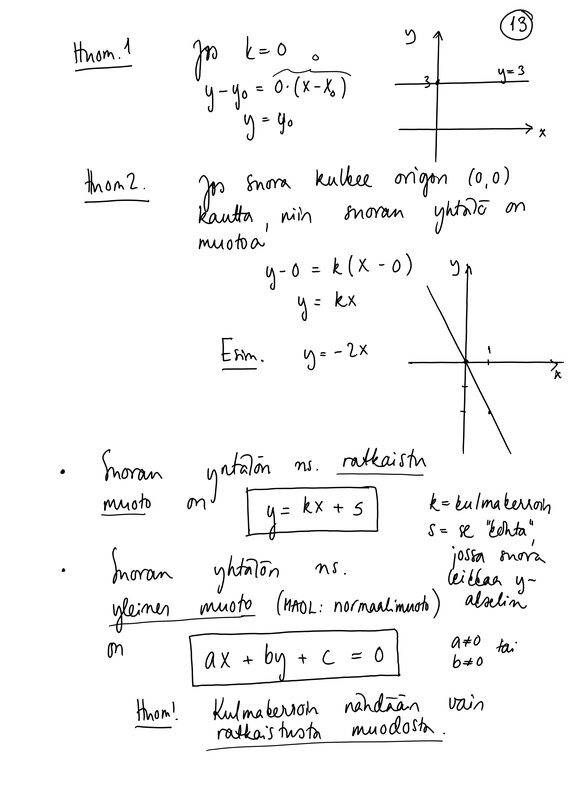 13
Huom.1 Jos k = 0
0
y-y₀ = 0·(x-x₀)
y = y₀
y
3
y=3
x
Huom2. Jos suora kulkee origon (0,0)
kautta, niin suoran yhtälö on
muotoa
y-0 = k(x-0)
y = kx
Esim. y = -2x
y
1
x
• Suoran yhtälön ns. ratkaistu
muoto on y = kx + s
k = kulmakerroin
s = se "kohta",
jossa suora
leikkaa y-
akselin
• Suoran yhtälön ns.
yleinen muoto (MAOL: normaalimuoto)
on ax + by + c = 0
a≠0 tai
b≠0
Huom! Kulmakerroin nähdään vain
ratkaistusta muodosta.